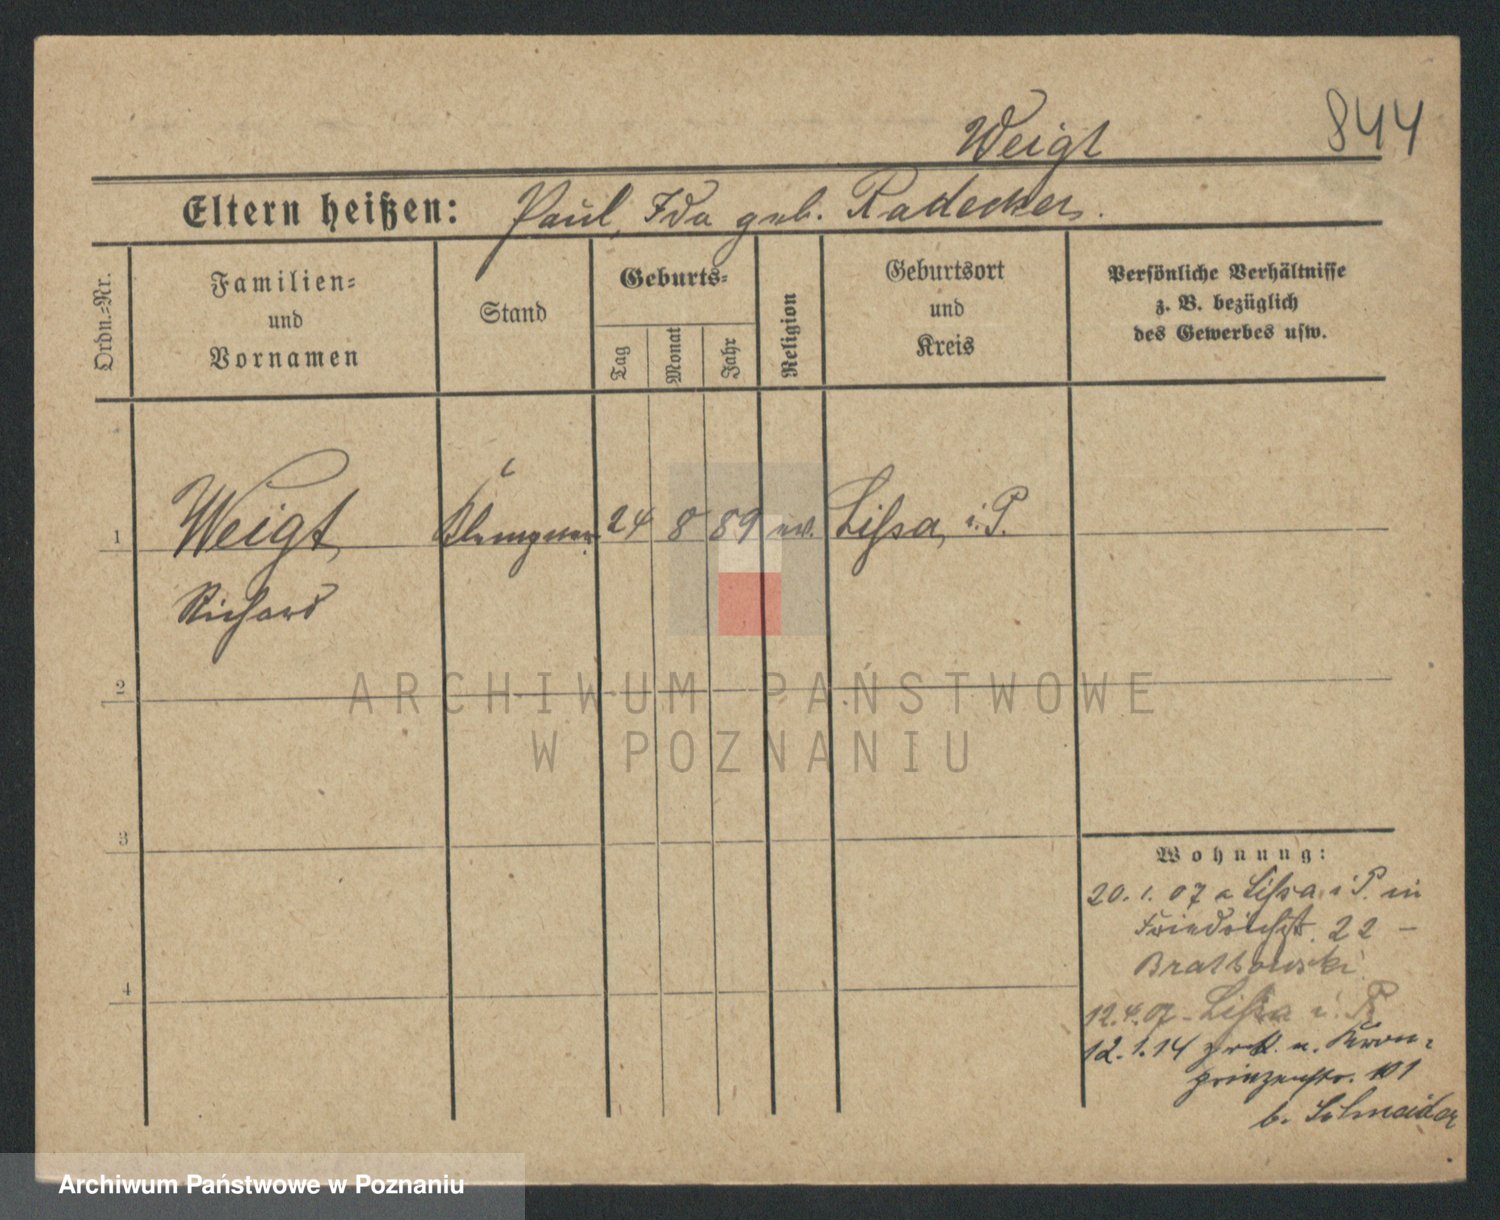 844
Weigt
Eltern heißen: Paul, Ida geb. Radecker.
Ordn.=Nr.
Familien=
und
Vornamen
Stand
Geburts=
Tag
Monat
Jahr
Religion
Geburtsort
und
Kreis
Persönliche Verhältnisse
z. B. bezüglich
des Gewerbes usw.
1 Weigt, Klempner 24 8 89 ev. Lissa, i. P.
Richard
2
3
4
Wohnung:
20. 1. 07 a Lissa i P. in
Friedrichst. 22 –
Bratkowski
12.4.07 - Lissa i. P.
12.1.14 zrk. n. Kron=
prinzenstr. 101
b. Schneider
ARCHIWUM PAŃSTWOWE
W POZNANIU
Archiwum Państwowe w Poznaniu